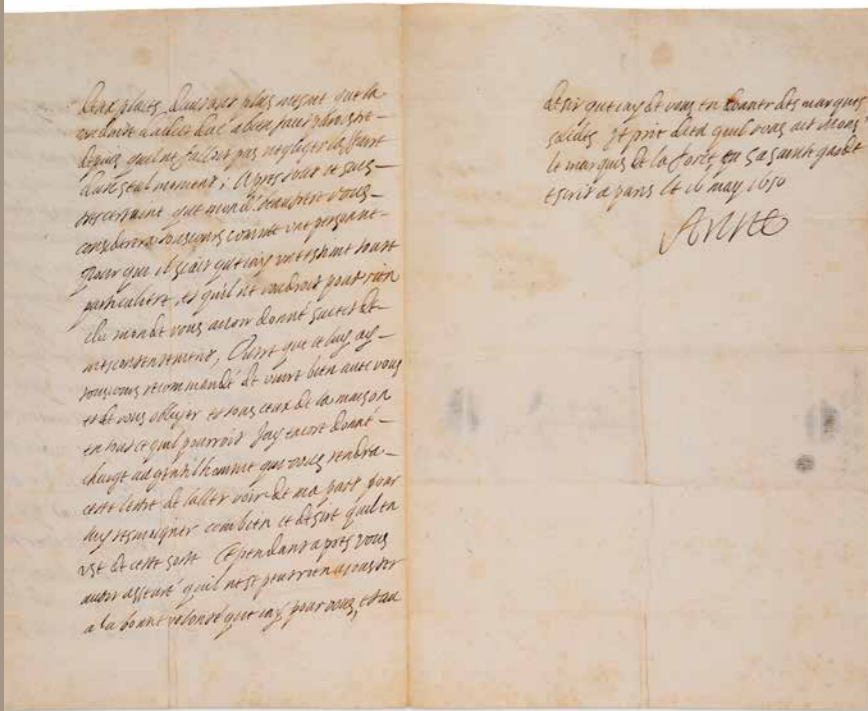 deux places, d'autant plus mesme que la
conduite dud. Duc a bien faict voir
depuis quil ne falloit pas negliger
dun seul moment; Apres tout je suis
tres certaine que mond.
considerera tousjours comme une personne
pour qui il sçait que j'ay une estime toute
particuliere, et quil ne voudroit pour rien
du monde vous avoir donné sujet de
mescontentement, Outre que je luy ay
tousjours recommandé de vivre bien avec vous
et de vous obliger et tous ceux de la maison
en tout ce quil pourroit Jay encore donné
charge au gentilhomme qui vous rendra
cette lettre de laller voir de ma part pour
luy tesmoigner combien je desire quil en
use de cette sorte Cependant apres vous
avoir asseuré quil ne se peut rien adjouster
a la bonne volonté que j'ay pour vous, et au
desir que j'ay de vous en donner des marques
solides Je prie Dieu quil vous ait Mons.r
le marquis de la force, en sa sainte garde
escrit a paris le 16 may 1650
Anne